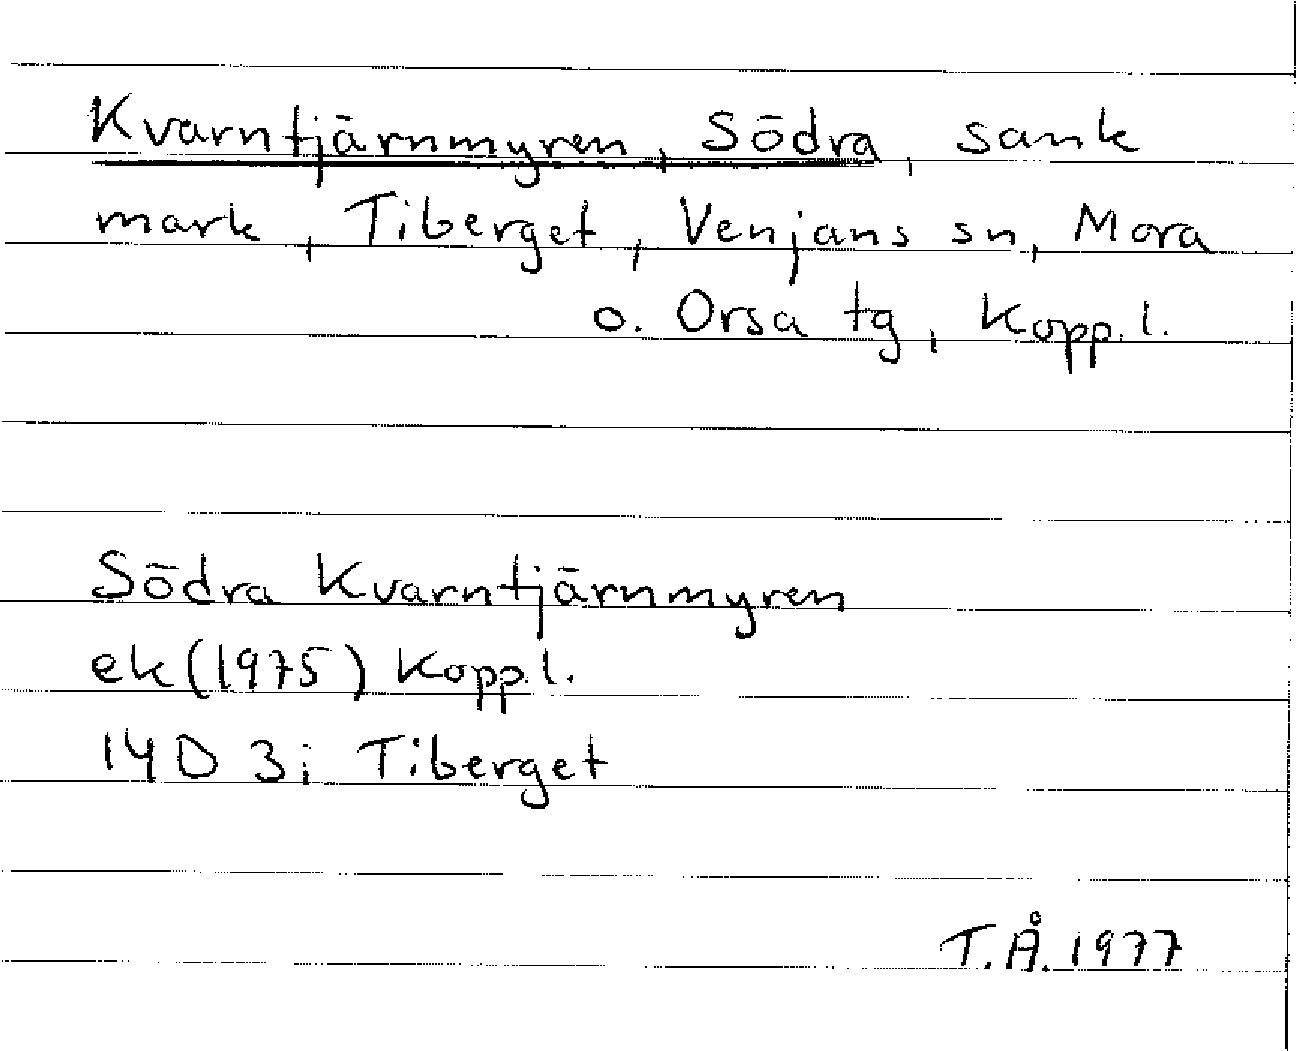 Kvarntjärnmyren, Södra, sank
mark, Tiberget, Venjans sn, Mora
o. Orsa tg, Kopp. l.
Södra Kvarntjärnmyren
ek (1975) Kopp. l.
14D 3i Tiberget
T.Å. 1977